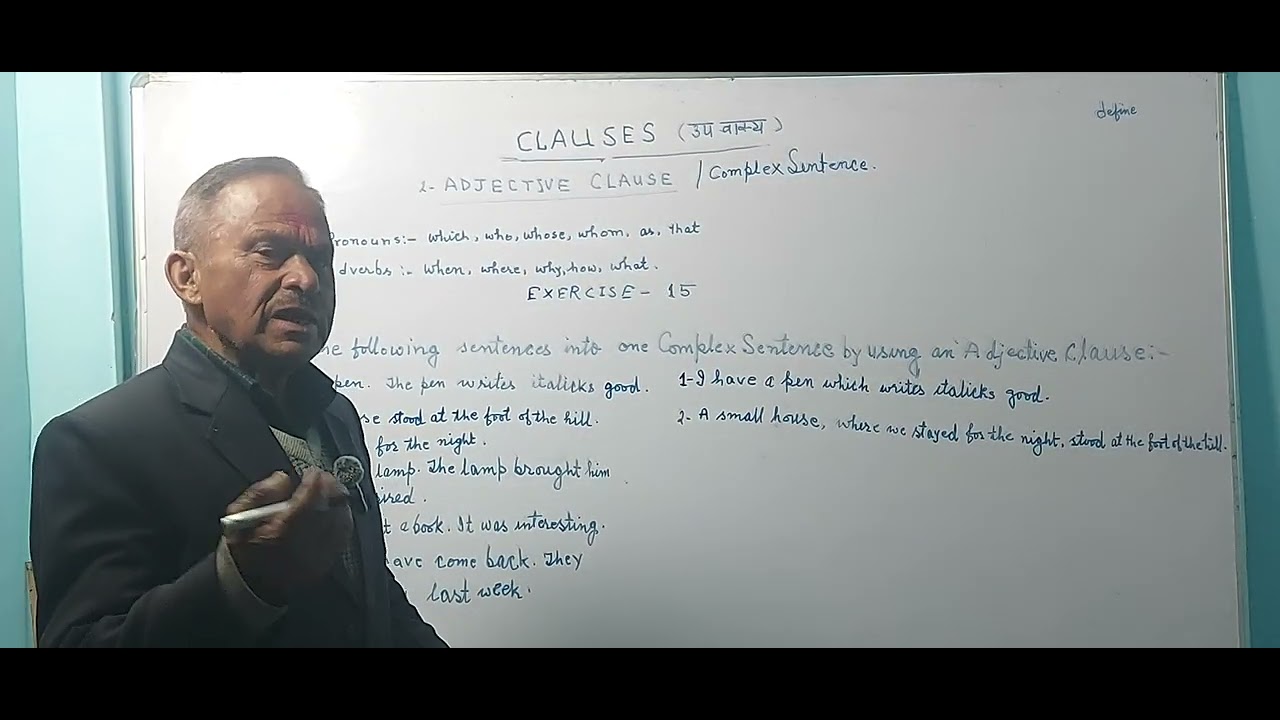 define
CLAUSES (उप वाक्य)
2- ADJECTIVE CLAUSE / Complex Sentence.
ronouns:- which, who, whose, whom, as, that
dverbs :- when, where, why, how, what.
EXERCISE - 15
he following sentences into one Complex Sentence by using an Adjective Clause:-
pen. The pen writes italicks good.
1- I have a pen which writes italicks good.
se stood at the foot of the hill.
for the night.
2- A small house, where we stayed for the night, stood at the foot of the hill.
lamp. The lamp brought him
ired.
t a book. It was interesting.
ave come back. They
last week.